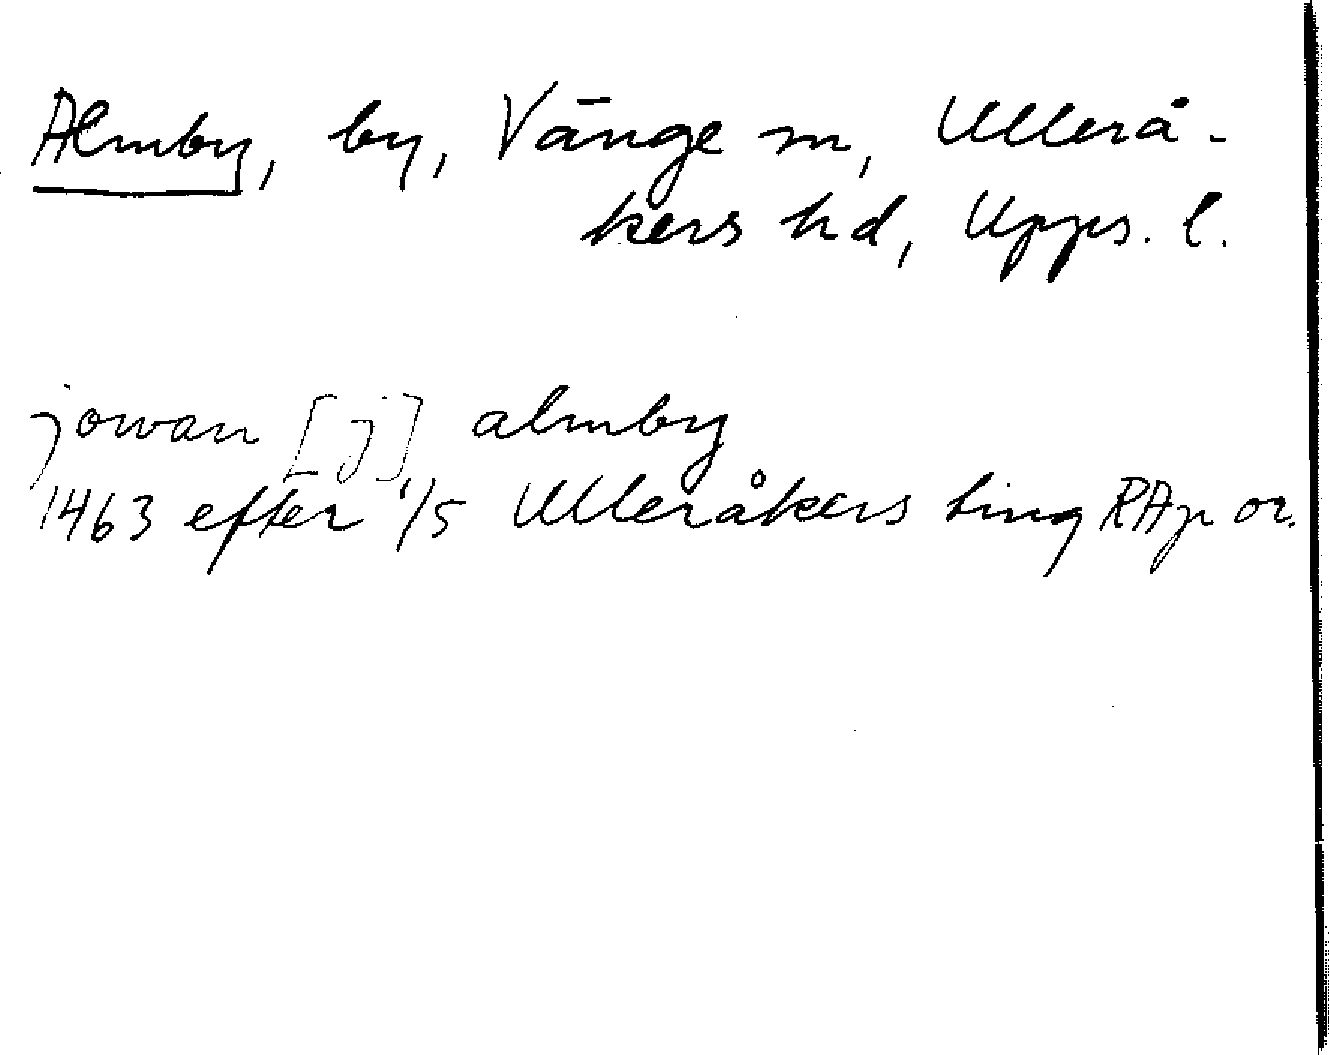 Almby, by, Vänge sn, Ullerå-
kers hd, Upps. l.
jowan [j] almby
1463 efter 1/5 Ulleråkers ting RAp or.